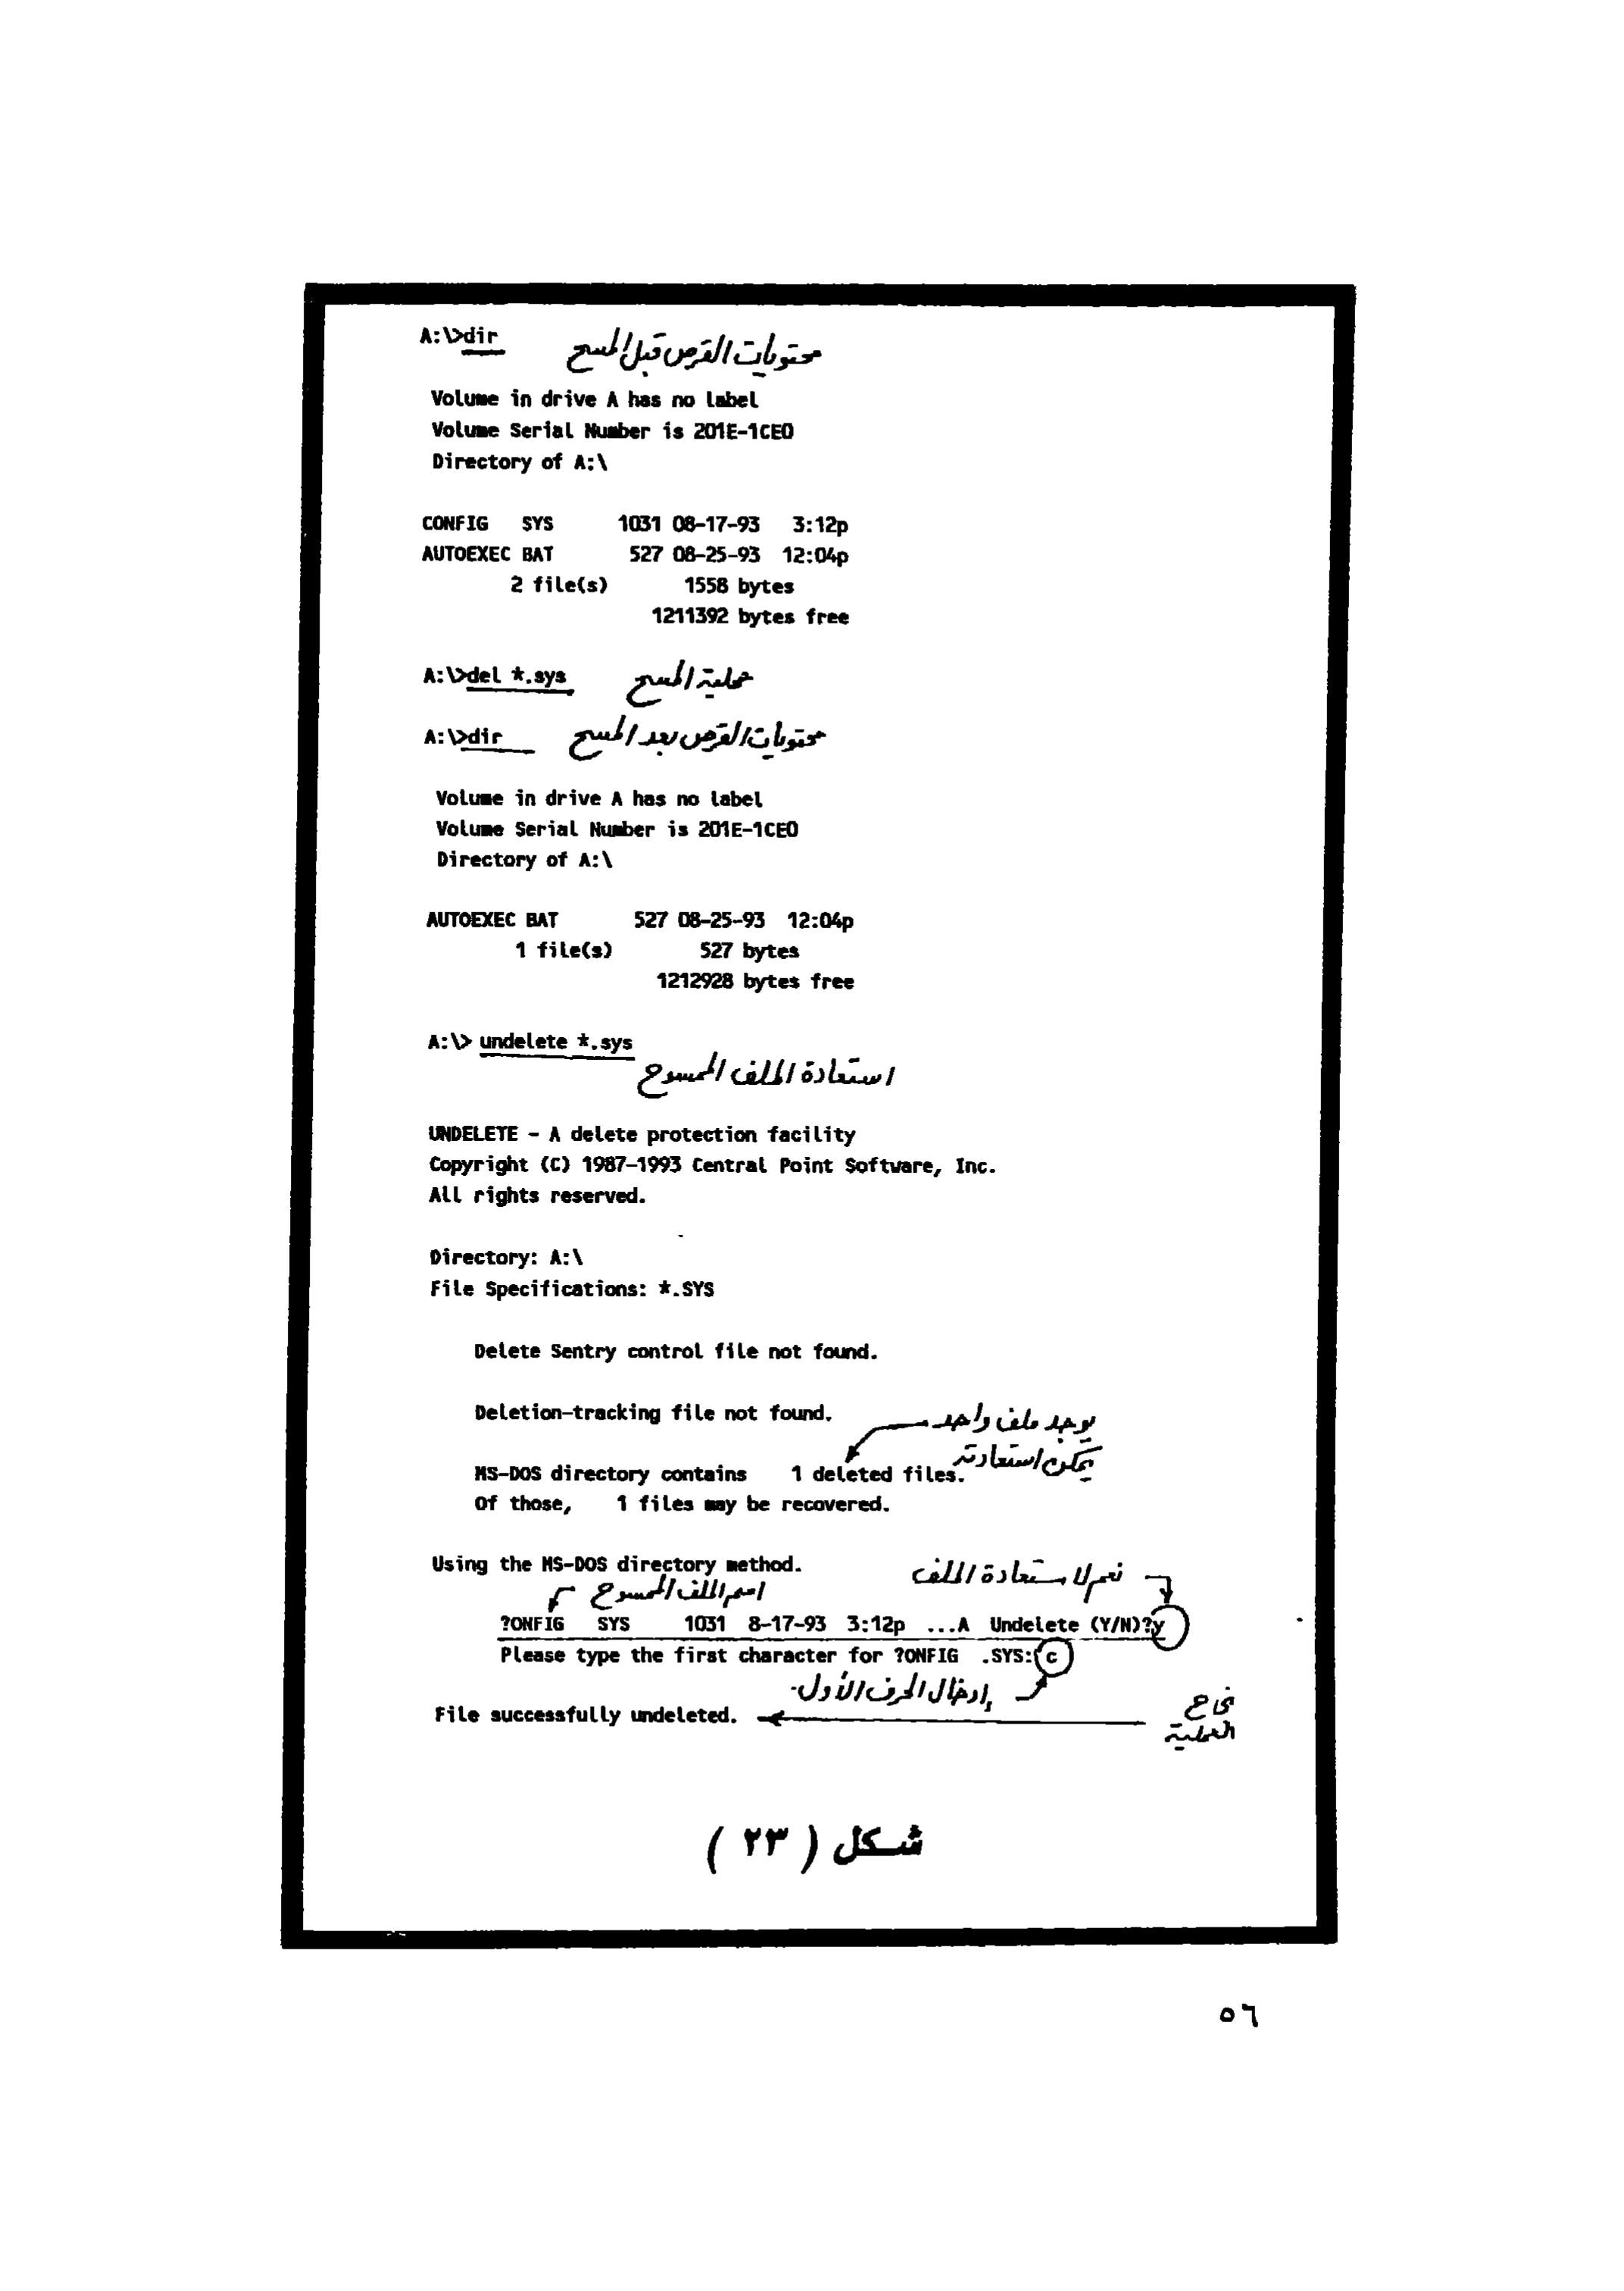 A:\>dir محتويات القرص قبل المسح
Volume in drive A has no label
Volume Serial Number is 201E-1CE0
Directory of A:\
CONFIG   SYS      1031 08-17-93   3:12p
AUTOEXEC BAT       527 08-25-93  12:04p
2 file(s)       1558 bytes
1211392 bytes free
A:\>del *.sys عملية المسح
A:\>dir محتويات القرص بعد المسح
Volume in drive A has no label
Volume Serial Number is 201E-1CE0
Directory of A:\
AUTOEXEC BAT       527 08-25-93  12:04p
1 file(s)        527 bytes
1212928 bytes free
A:\> undelete *.sys
استعادة الملف الممسوح
UNDELETE - A delete protection facility
Copyright (C) 1987-1993 Central Point Software, Inc.
All rights reserved.
Directory: A:\
File Specifications: *.SYS
Delete Sentry control file not found.
Deletion-tracking file not found.
يوجد ملف واحد
يمكن استعادته
MS-DOS directory contains    1 deleted files.
Of those,    1 files may be recovered.
Using the MS-DOS directory method.
نعم لاستعادة الملف
اسم الملف الممسوح
?ONFIG   SYS     1031  8-17-93  3:12p  ...A  Undelete (Y/N)?y
Please type the first character for ?ONFIG  .SYS: c
إدخال الحرف الأول.
File successfully undeleted.
نجاح
العملية
شكل ( ٢٣ )
٥٦